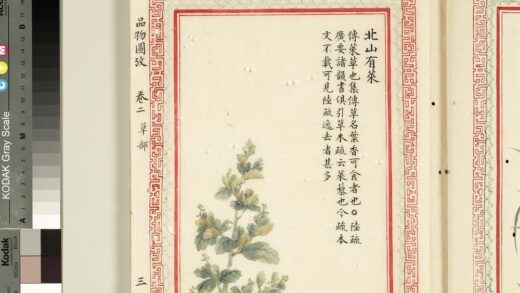 北山有萊
傳萊草也集傳草名葉香可食者也○陸疏
廣要諸韻書俱引草木疏云萊藜也今疏本
文不載可見陸疏逸去者甚多
品物圖攷 卷二 草部 三
KODAK Gray Scale
C
M
A
Kodak